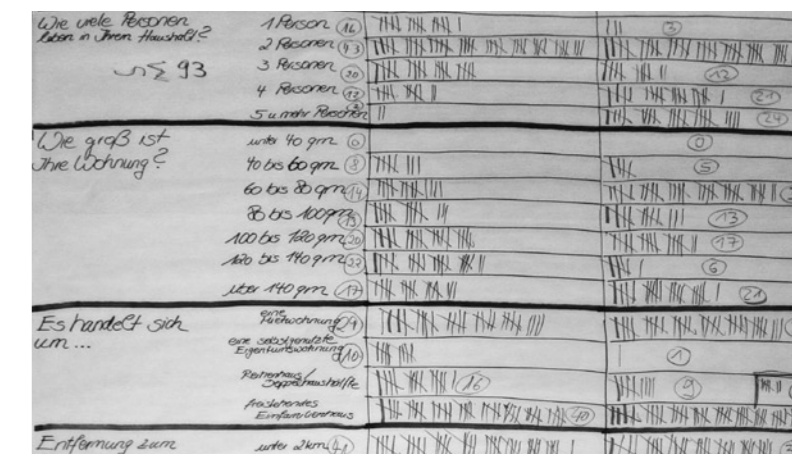 Wie viele Personen 1 Person 16 3
leben in Ihrem Haushalt? 2 Personen 43
∑ 93 3 Personen 20 12
4 Personen 12 21
5 u. mehr Personen 2 24
Wie groß ist unter 40 qm 0 0
Ihre Wohnung? 40 bis 60 qm 8 5
60 bis 80 qm 14
80 bis 100 qm 13 13
100 bis 120 qm 20 17
120 bis 140 qm 22 6
über 140 qm 17 21
Es handelt sich eine Mietwohnung
um... eine selbstgenutzte
Eigentumswohnung 10 1
Reihenhaus/
Doppelhaushälfte 16 9
freistehendes
Einfamilienhaus 40
Entfernung zum unter 2km 41